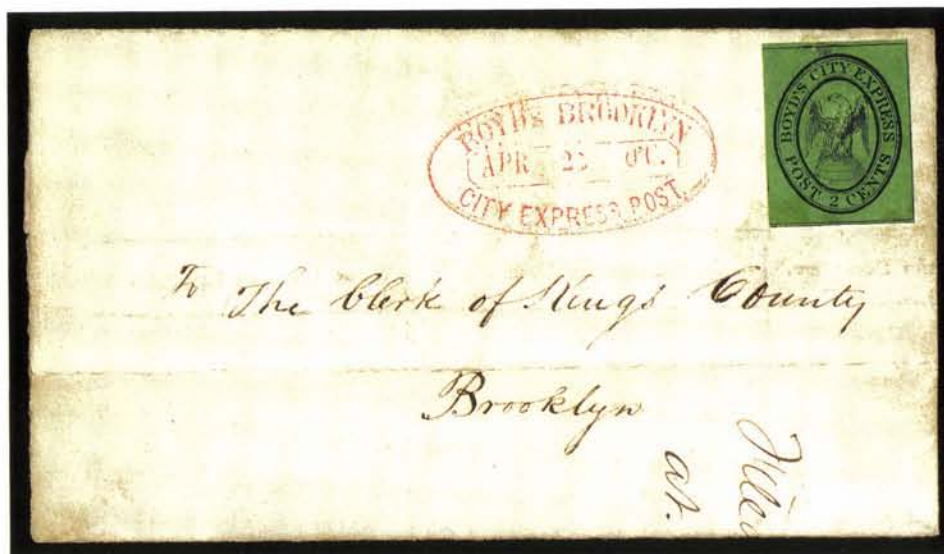 BOYD'S BROOKLYN
APR 23 O'C.
CITY EXPRESS POST.
BOYD'S CITY EXPRESS
POST 2 CENTS
To The Clerk of Kings County
Brooklyn
at.